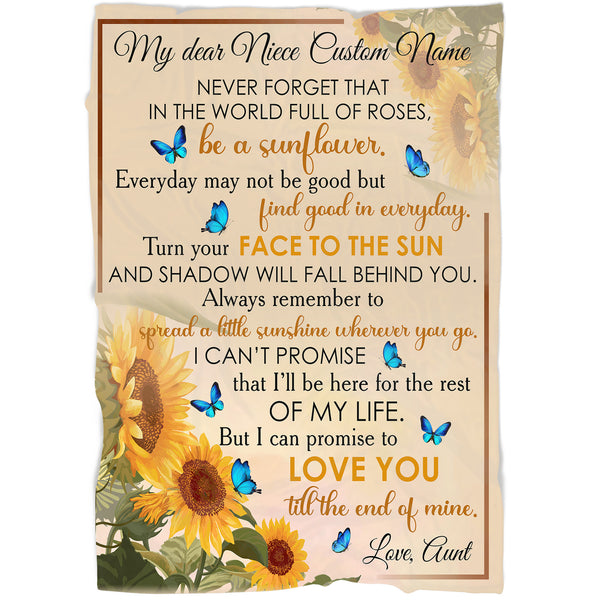 My dear Niece Custom Name
NEVER FORGET THAT
IN THE WORLD FULL OF ROSES,
be a sunflower.
Everyday may not be good but
find good in everyday.
Turn your FACE TO THE SUN
AND SHADOW WILL FALL BEHIND YOU.
Always remember to
spread a little sunshine wherever you go.
I CAN'T PROMISE
that I'll be here for the rest
OF MY LIFE.
But I can promise to
LOVE YOU
till the end of mine.
Love, Aunt